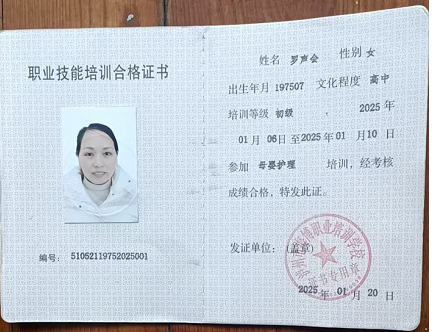 职业技能培训合格证书
编号: 51052119752025001
姓名 罗声会 性别 女
出生年月 197507 文化程度 高中
培训等级 初级 , 2025 年
01 月 06日 至 2025 年 01 月 10 日
参加 母婴护理 培训, 经考核
成绩合格, 特发此证。
发证单位: (盖章)
职业培训学校
证书专用章
2025 年 01 月 20 日